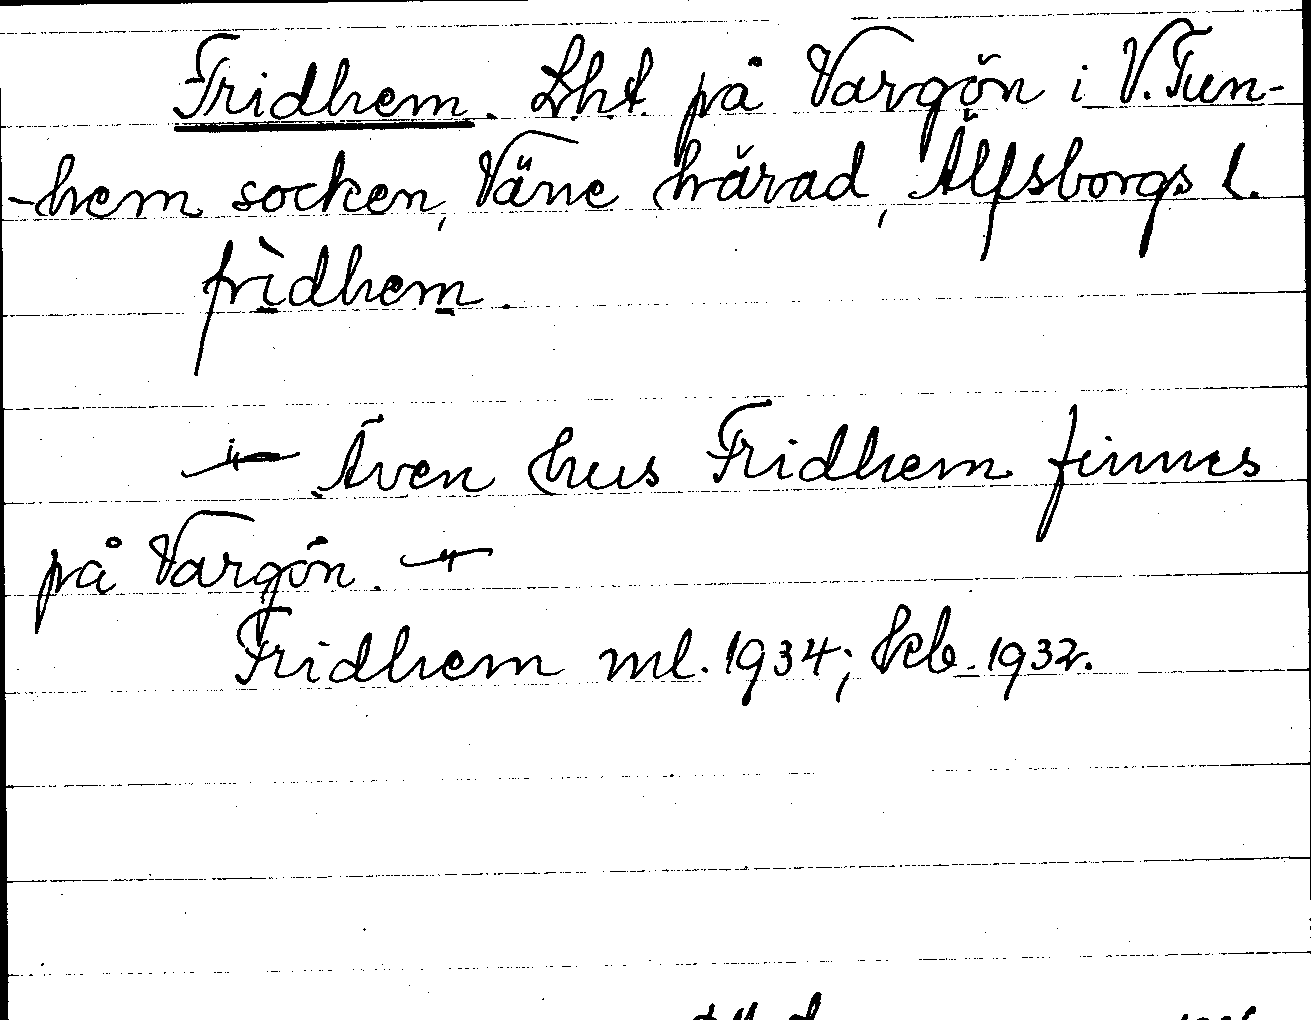 Fridhem. Lht. på Vargön i V. Tun-
-hem socken, Väne härad, Älfsborgs l.
frìdhem.
Även hus Fridhem finnes
på Vargön.
Fridhem ml. 1934; kb. 1932.